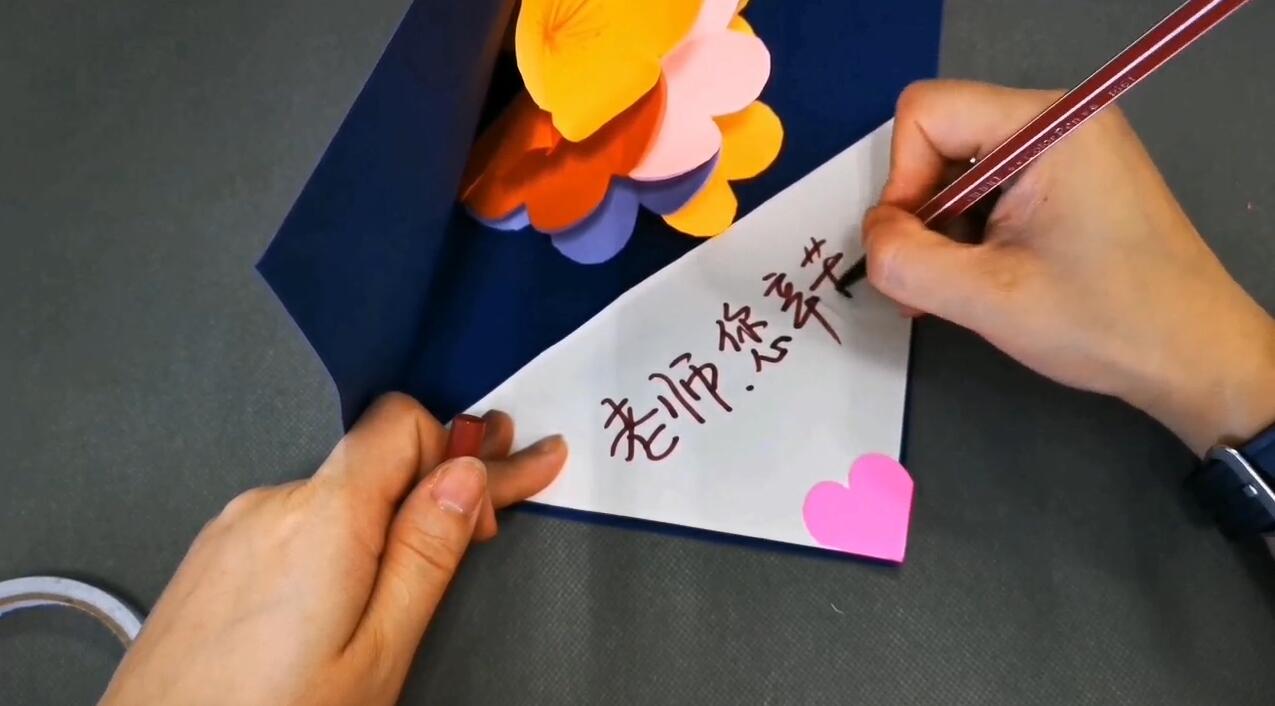 老师您辛